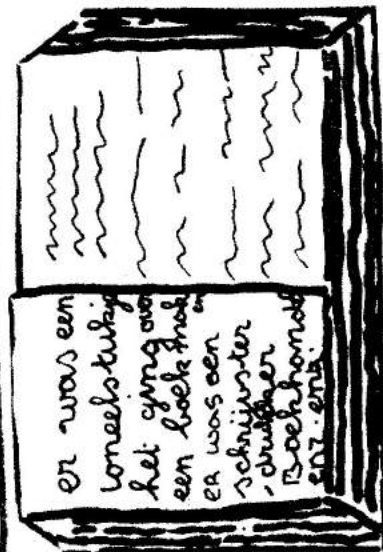 er was een
toneelstukje
het ging over
een boek maken
er was een
schrijfster
, drukker
Boekhandel
enz. enz.